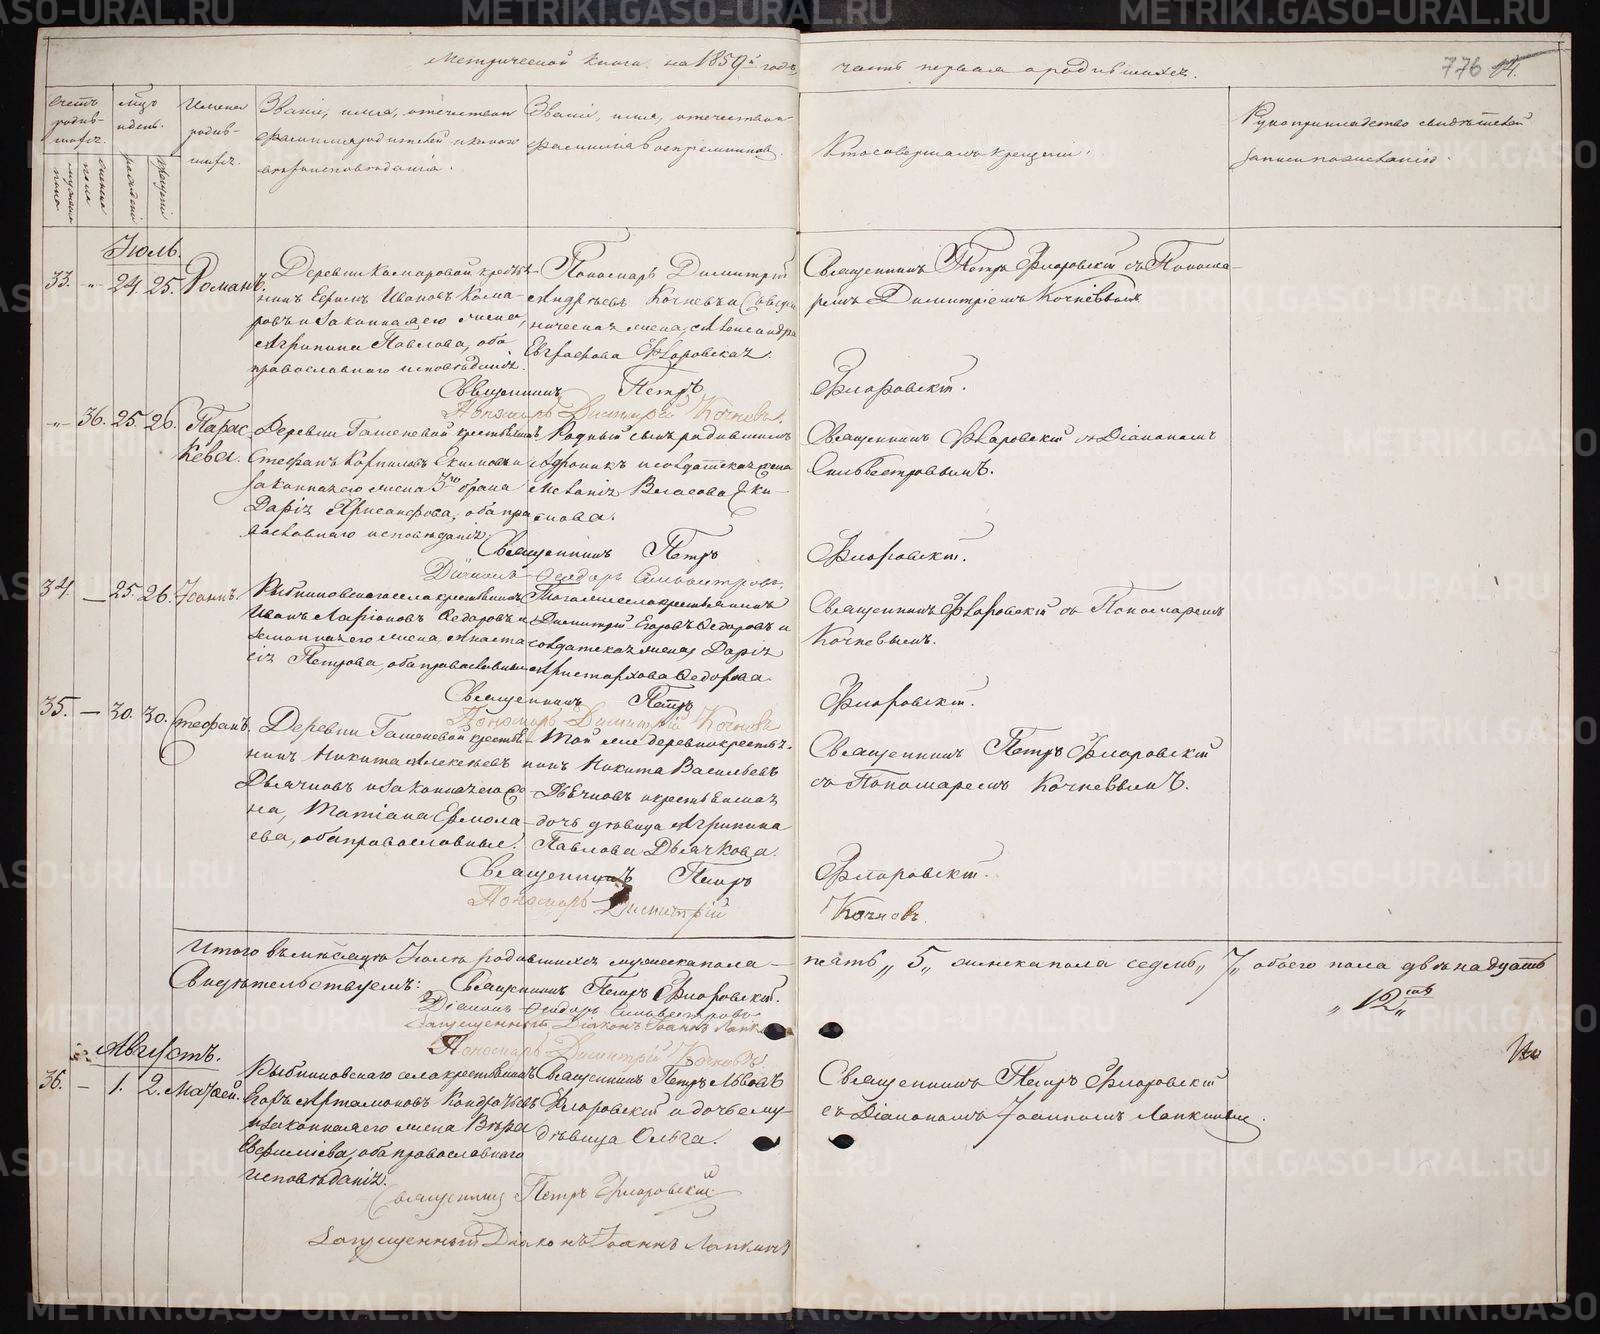 Метрической книги на 1859й годъ,
часть первая о родившихся.
776
14.
Счетъ родив-шихся.
мужеска пола
женска пола
Мѣсяцъ и день.
рожденія
крещенія
Имена родив-шихся.
Званіе, имя, отечество и
фамилія родителей и какого
вѣроисповѣданія.
Званіе, имя, отечество и
фамилія воспріемниковъ.
Кто совершалъ крещеніе.
Рукоприкладство свидѣтелей
записи по желанію.
Іюль.
33. -„- 24. 25. Романъ.
Деревни Комаровой кресть-
янинъ Ефимъ Ивановъ Кома-
ровъ и законная его жена,
Агрипина Павлова, оба
православнаго исповѣданія.
Пономарь Димитрій
Андреевъ Кочневъ и Священ-
ническая жена, Александра
Евграфова Флоровская.
Священникъ Петръ Флоровскій съ Понома-
ремъ Димитріемъ Кочневымъ
Священникъ Петръ Флоровскій.
Пономарь Димитрій Кочневъ.
-„- 36. 25. 26. Парас-
кева.
Деревни Гашеневой крестьянинъ
Стефанъ Корниловъ Екимовъ и
законная его жена 3го брака
Дарія Хрисанфова, оба пра-
вославнаго исповѣданія.
Родный сынъ родившихъ
Андроникъ и солдатская жена
Меланія Власова Еки-
мова.
Священникъ Флоровскій съ Діакономъ
Сильвестровымъ.
Священникъ Петръ Флоровскій.
Діаконъ Феодоръ Сильвестровъ.
34. — 25. 26. Іоаннъ.
Рыбниковскаго села крестьянинъ
Иванъ Ларіоновъ Федоровъ и
законная его жена, Анаста-
сія Петрова, оба православные
Того же села крестьянинъ
Димитрій Егоровъ Федоровъ и
солдатская жена Дарія
Аристархова Федорова.
Священникъ Флоровскій съ Пономаремъ
Кочневымъ.
Священникъ Петръ Флоровскій.
Пономарь Димитрій Кочневъ
35. — 30. 30. Стефанъ.
Деревни Гашеневой крестья-
нинъ Никита Алексѣевъ
Дьячковъ и законная его же-
на, Татіана Ермола-
ева, оба православные.
Той же деревни кресть-
янинъ Никита Васильевъ
Дьячковъ и крестьянская
дочь дѣвица Агрипина
Павлова Дьячкова.
Священникъ Петръ Флоровскій
съ Пономаремъ Кочневымъ.
Священникъ Петръ Флоровскій.
Пономарь Димитрій Кочневъ.
Итого въ мѣсяцѣ Іюлѣ родившихся мужеска пола — пять „5„ женска пола седмь „7„ обоего пола двѣнадцать
„12„
Свидѣтельствуемъ: Священникъ Петръ Флоровскій.
Діаконъ Феодоръ Сильвестровъ
Запрещенный Діаконъ Іоаннъ Лапкинъ
Пономарь Димитрій Кочневъ
Августъ.
36. — 1. 2. Матѳей.
Рыбниковскаго села крестьянинъ
Егоръ Артамоновъ Кондратьевъ
и законная его жена Вѣра
Ефимиева, оба православнаго
исповѣданія.
Священникъ Петръ Львовъ
Флоровскій и дочь ему
дѣвица Ольга.
Священникъ Петръ Флоровскій
съ Діакономъ Іоанномъ Лапкинымъ.
Священникъ Петръ Флоровскій
Запрещенный Діаконъ Іоаннъ Лапкинъ
METRIKI.GASO-URAL.RU